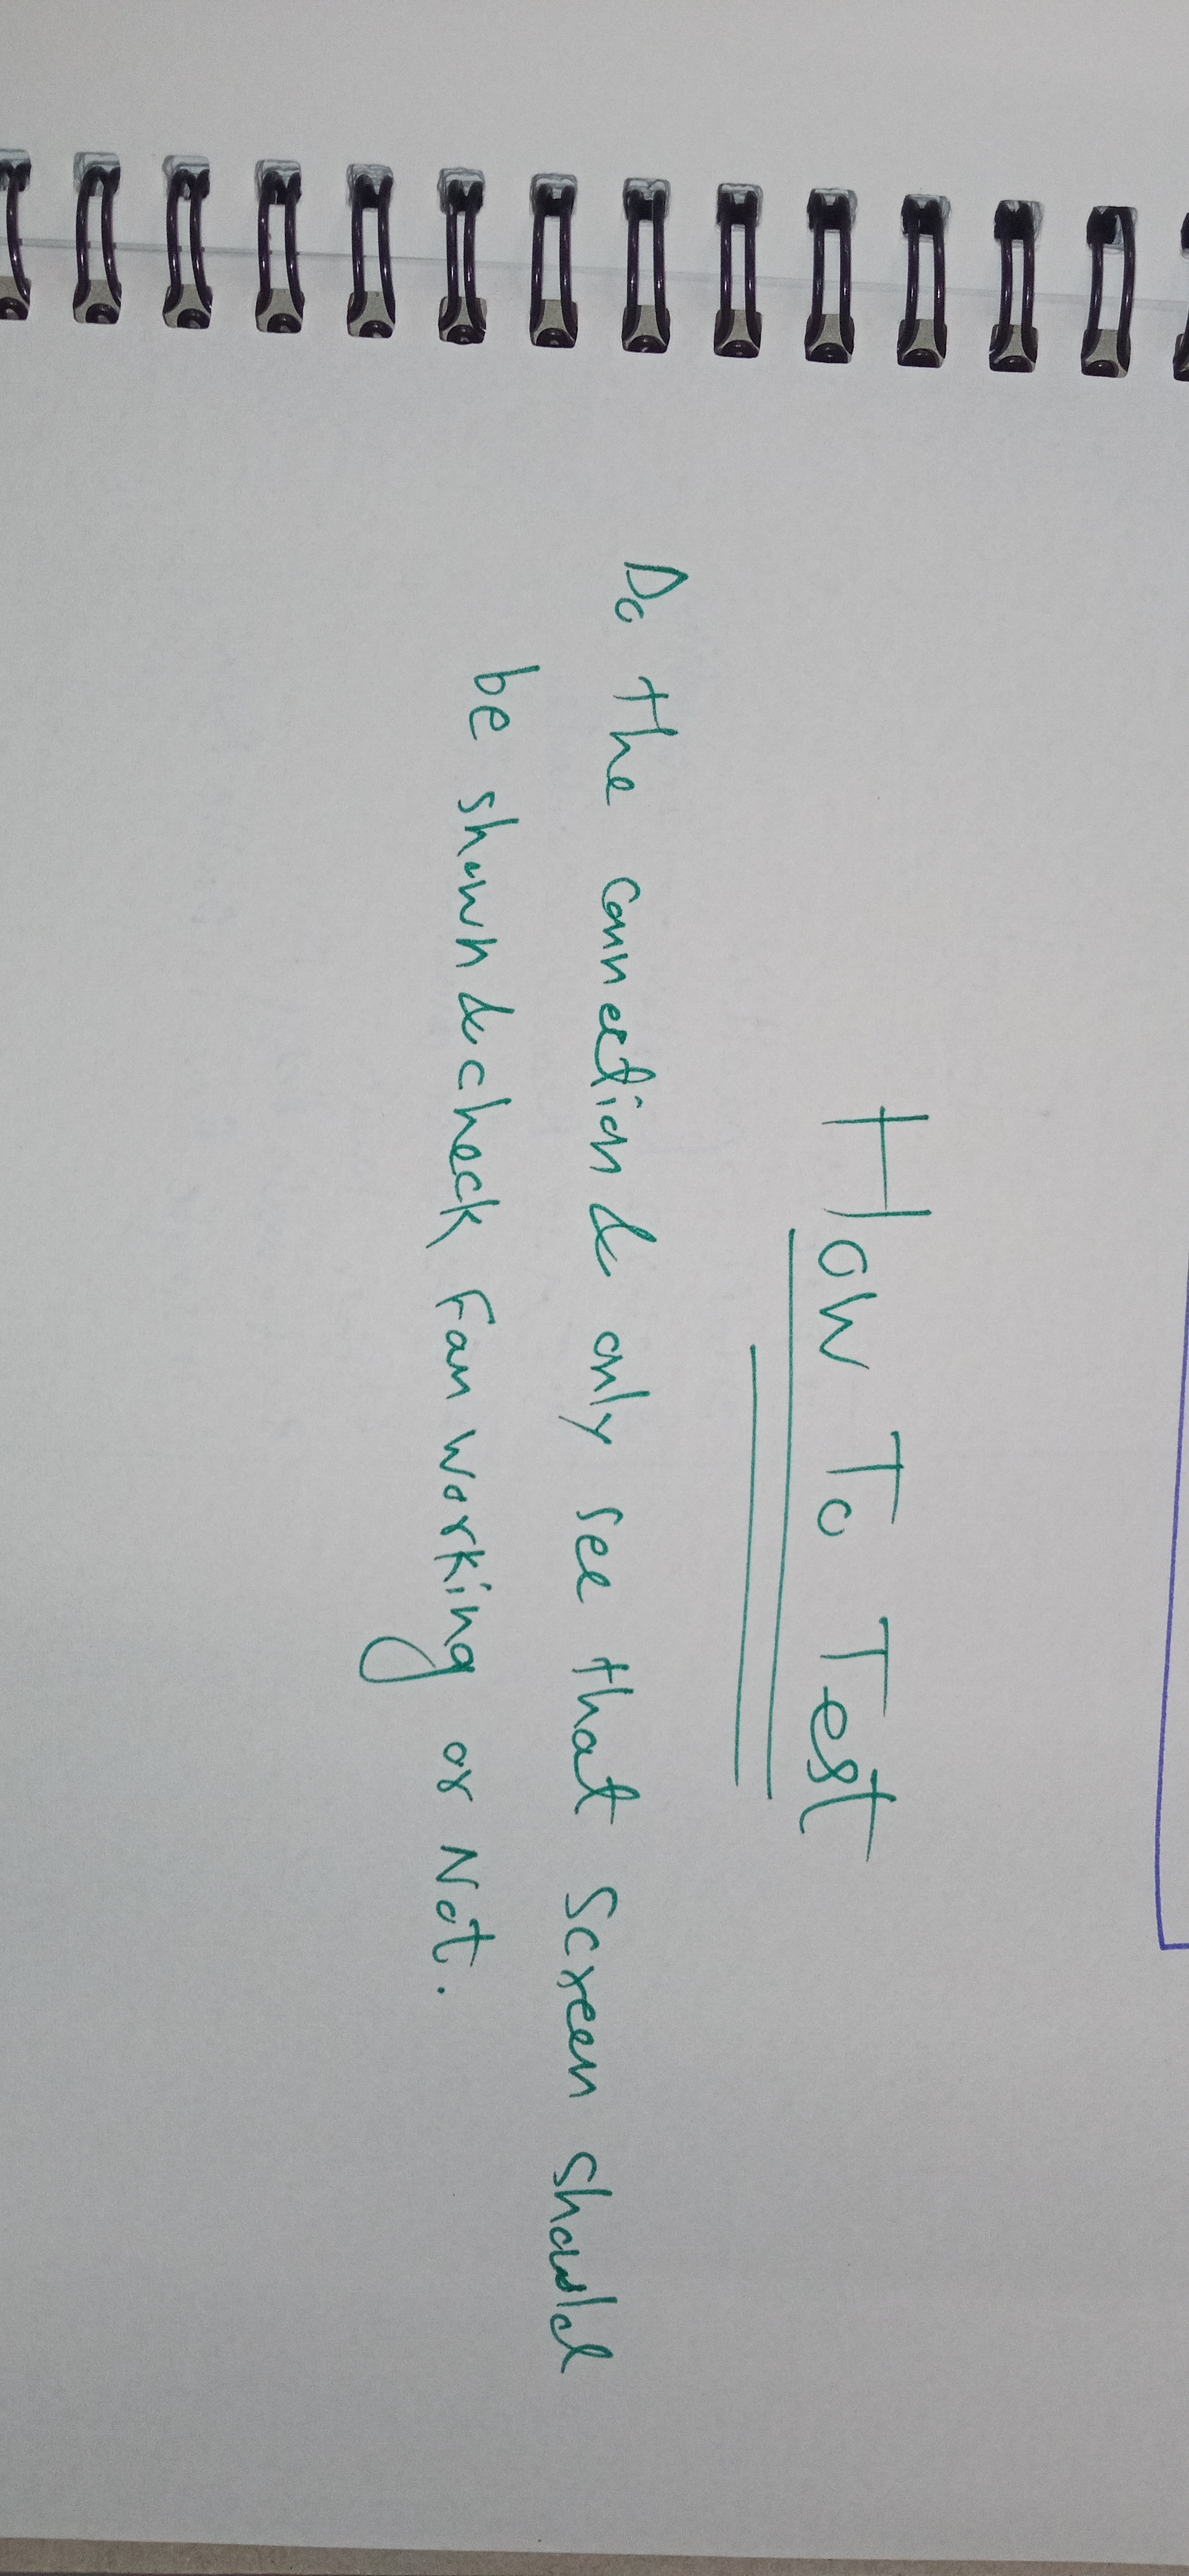 How To Test
Do the connection & only see that Screen should
be shown & check Fan working or Not.